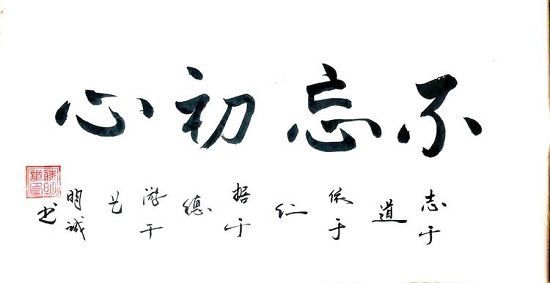 不忘初心
志于
道
依于
仁
据于
德
游于
艺
明诚
书